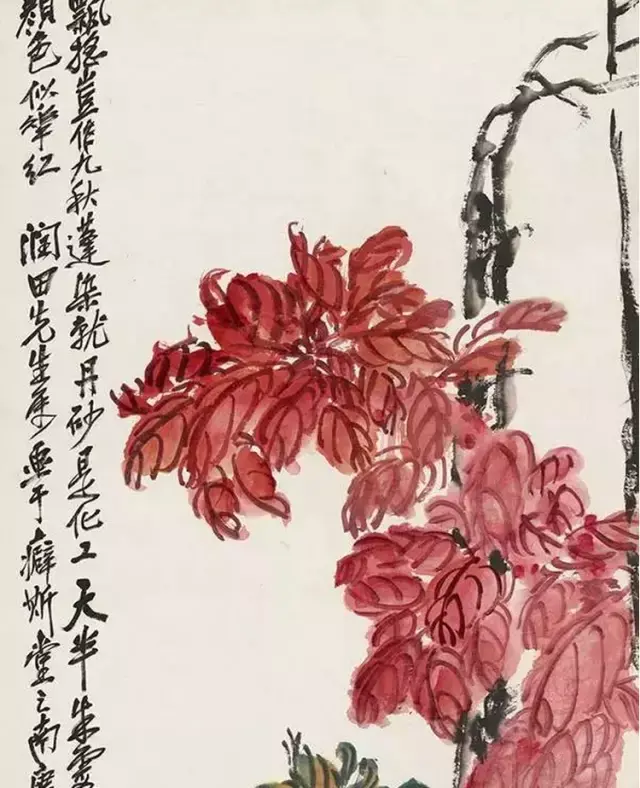 飄揺豈作九秋蓬染就丹砂是化工天半朱霞
顏色似華紅 潤田先生屬畫于癖斯堂之南